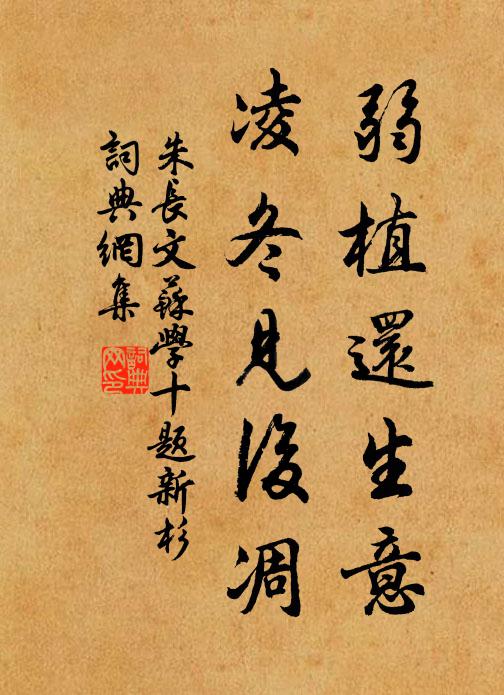 弱植還生意
凌冬見後凋
朱長文蘇學十題新杉
詞典網集
詞典網印